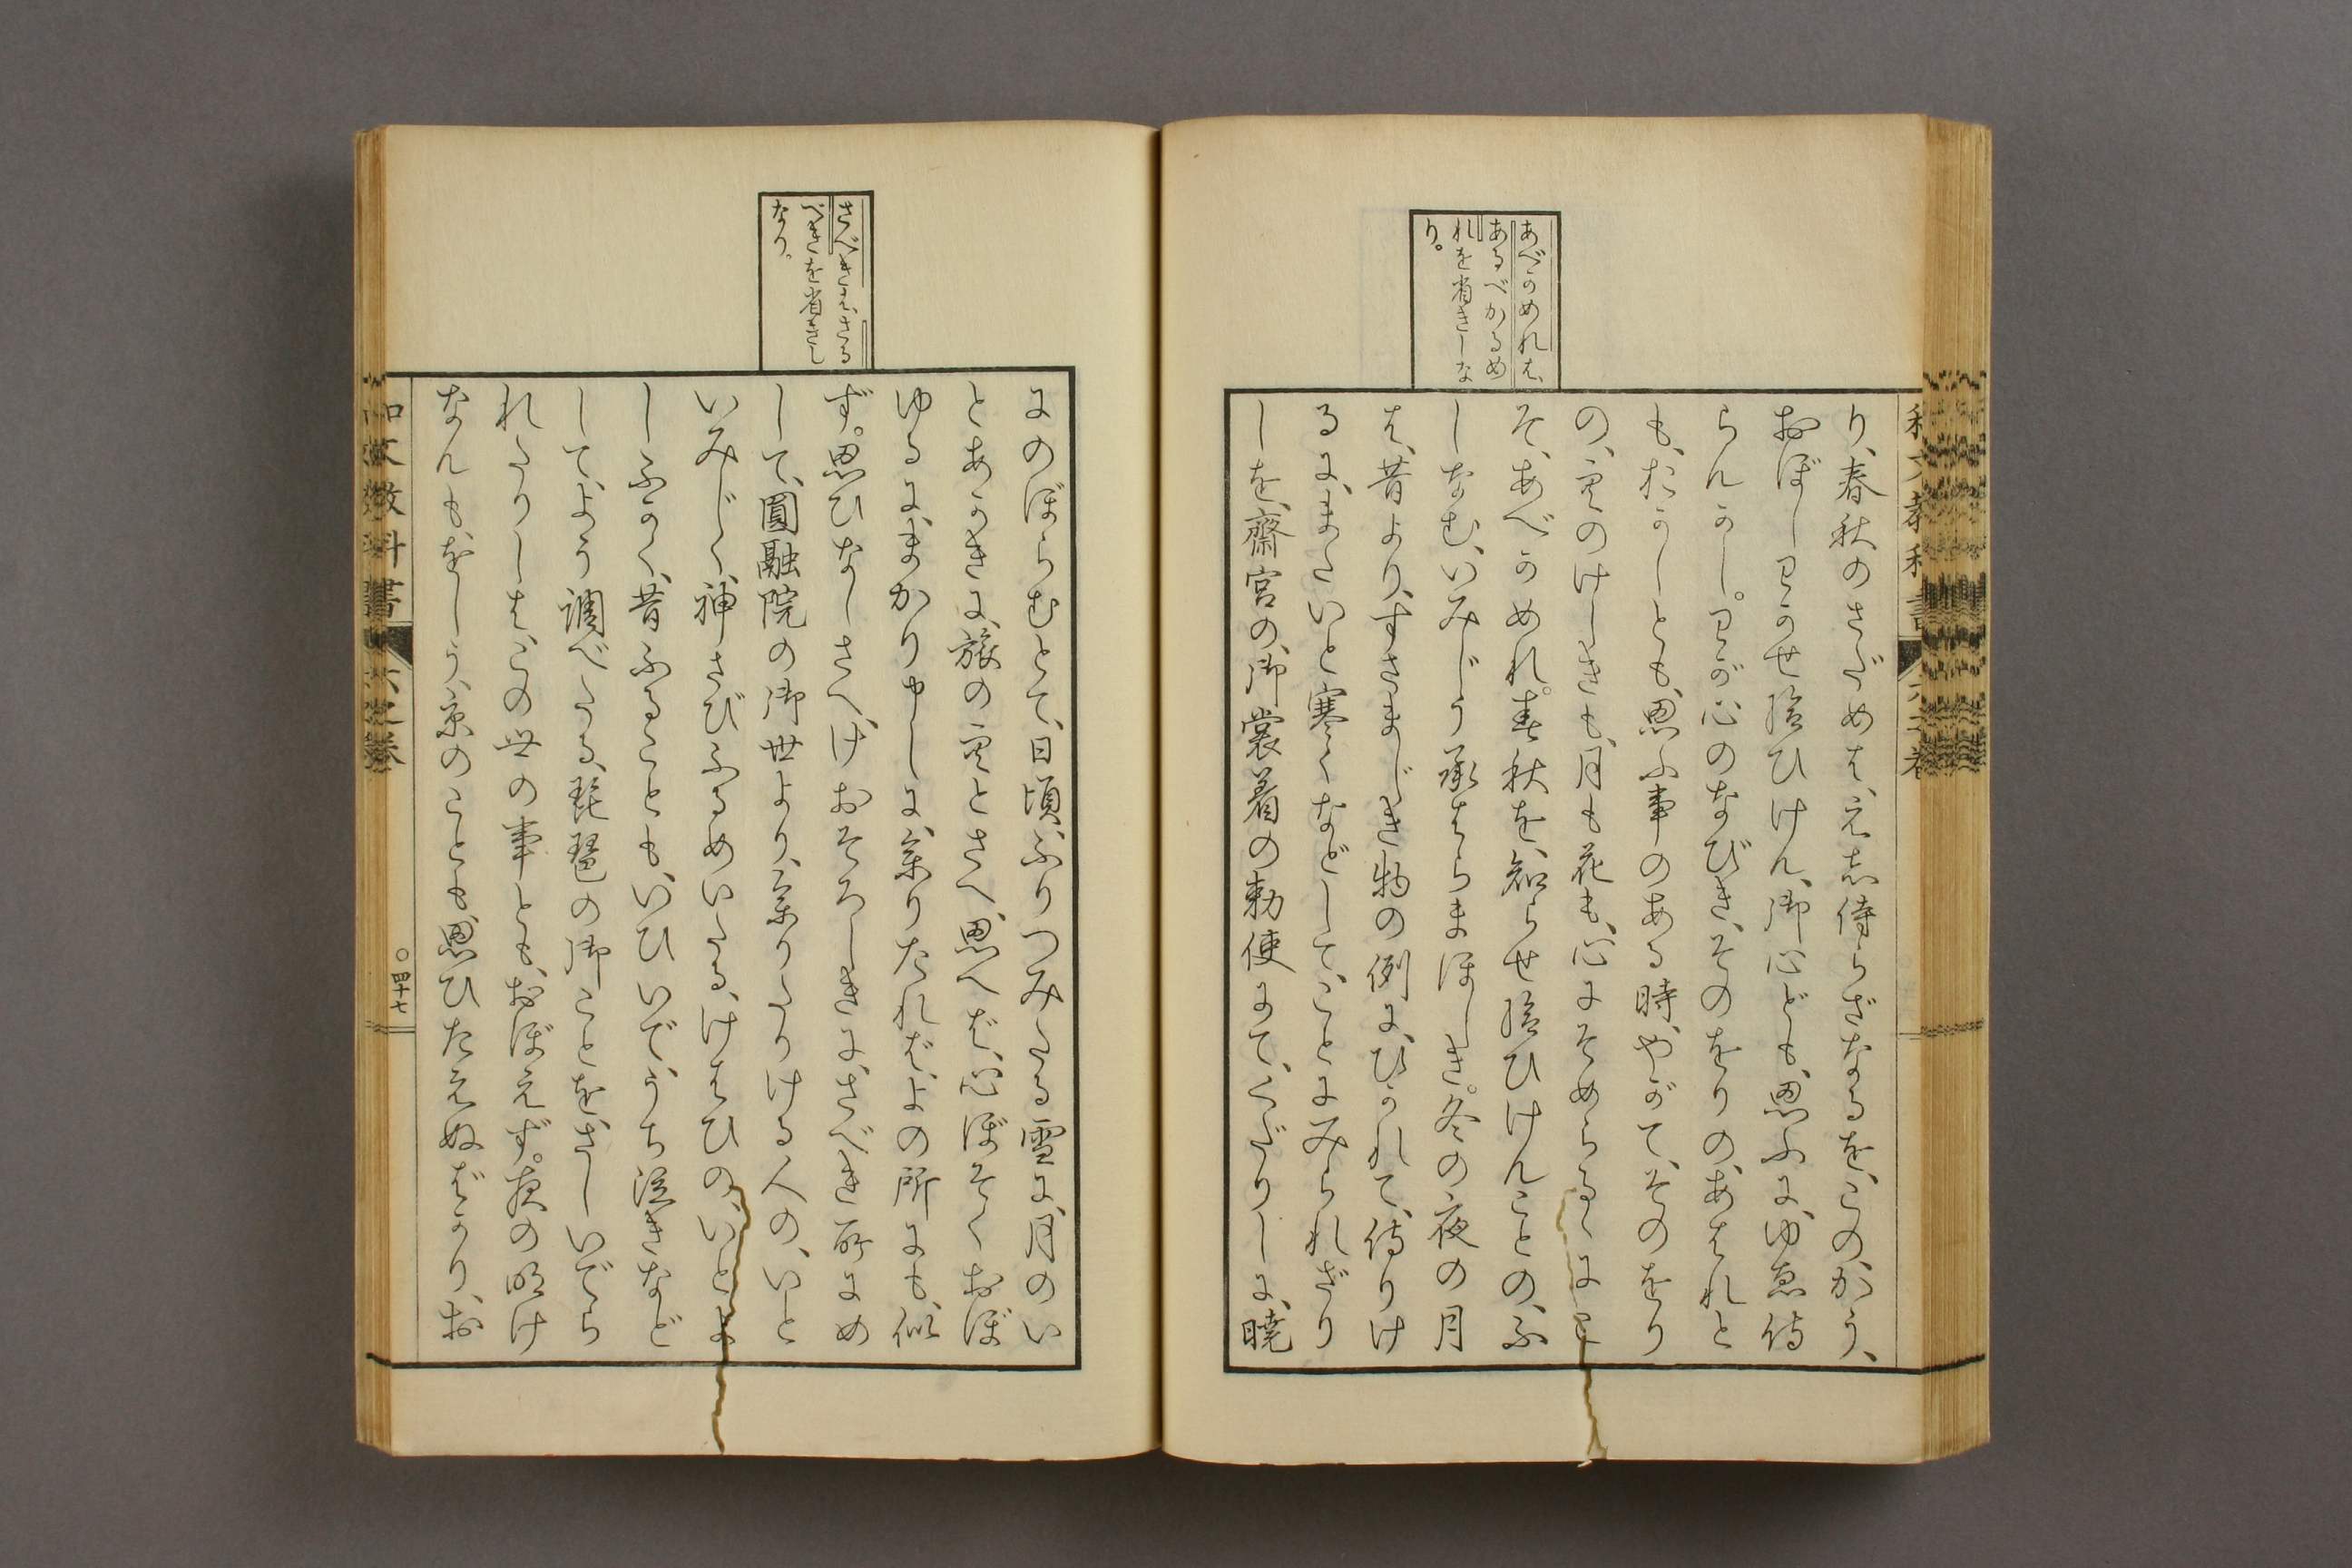 あべかめれは、
あるべかるめ
れを省きしな
り。
り、春秋のさだめは、え志侍らざなるを、このかう、
おぼしわかせ給ひけん、御心ども、思ふに、ゆゑ侍
らんかし。わが心のなびき、そのをりの、あはれと
も、をかしとも、思ふ事のある時、やがて、そのをり
の、空のけしきも、月も花も、心にそめらるゝにこ
そ、あべかめれ。春秋を、知らせ給ひけんことの、ふ
しなむ、いみじう承はらまほしき。冬の夜の月
は、昔より、すさまじき物の例に、ひかれて、侍りけ
るに、またいと寒くなどして、ことにみられざり
しを、齋宮の、御裳着の勅使にて、くだりしに、曉
さべきは、さる
べきを省きし
なり。
にのぼらむとて、日頃ふりつみたる雪に、月のい
とあかきに、旅の空とさへ、思へば、心ぼそくおぼ
ゆるに、まかり申しに、參りたれば、よの所にも、似
ず。思ひなしさへ、けおそろしきに、さべき所にめ
して、圓融院の御世より、參りたりける人の、いと
いみじく、神さびふるめいたる、けはひの、いとよ
しふかく、昔ふることも、いひいで、うち泣きなど
して、よう調べたる、琵琶の御ことを、さしいでら
れたりしは、この世の事とも、おぼえず。夜の明け
なんも、をしう、京のことも、思ひたえぬばかり、お
和文教科書
六之卷
○四十七